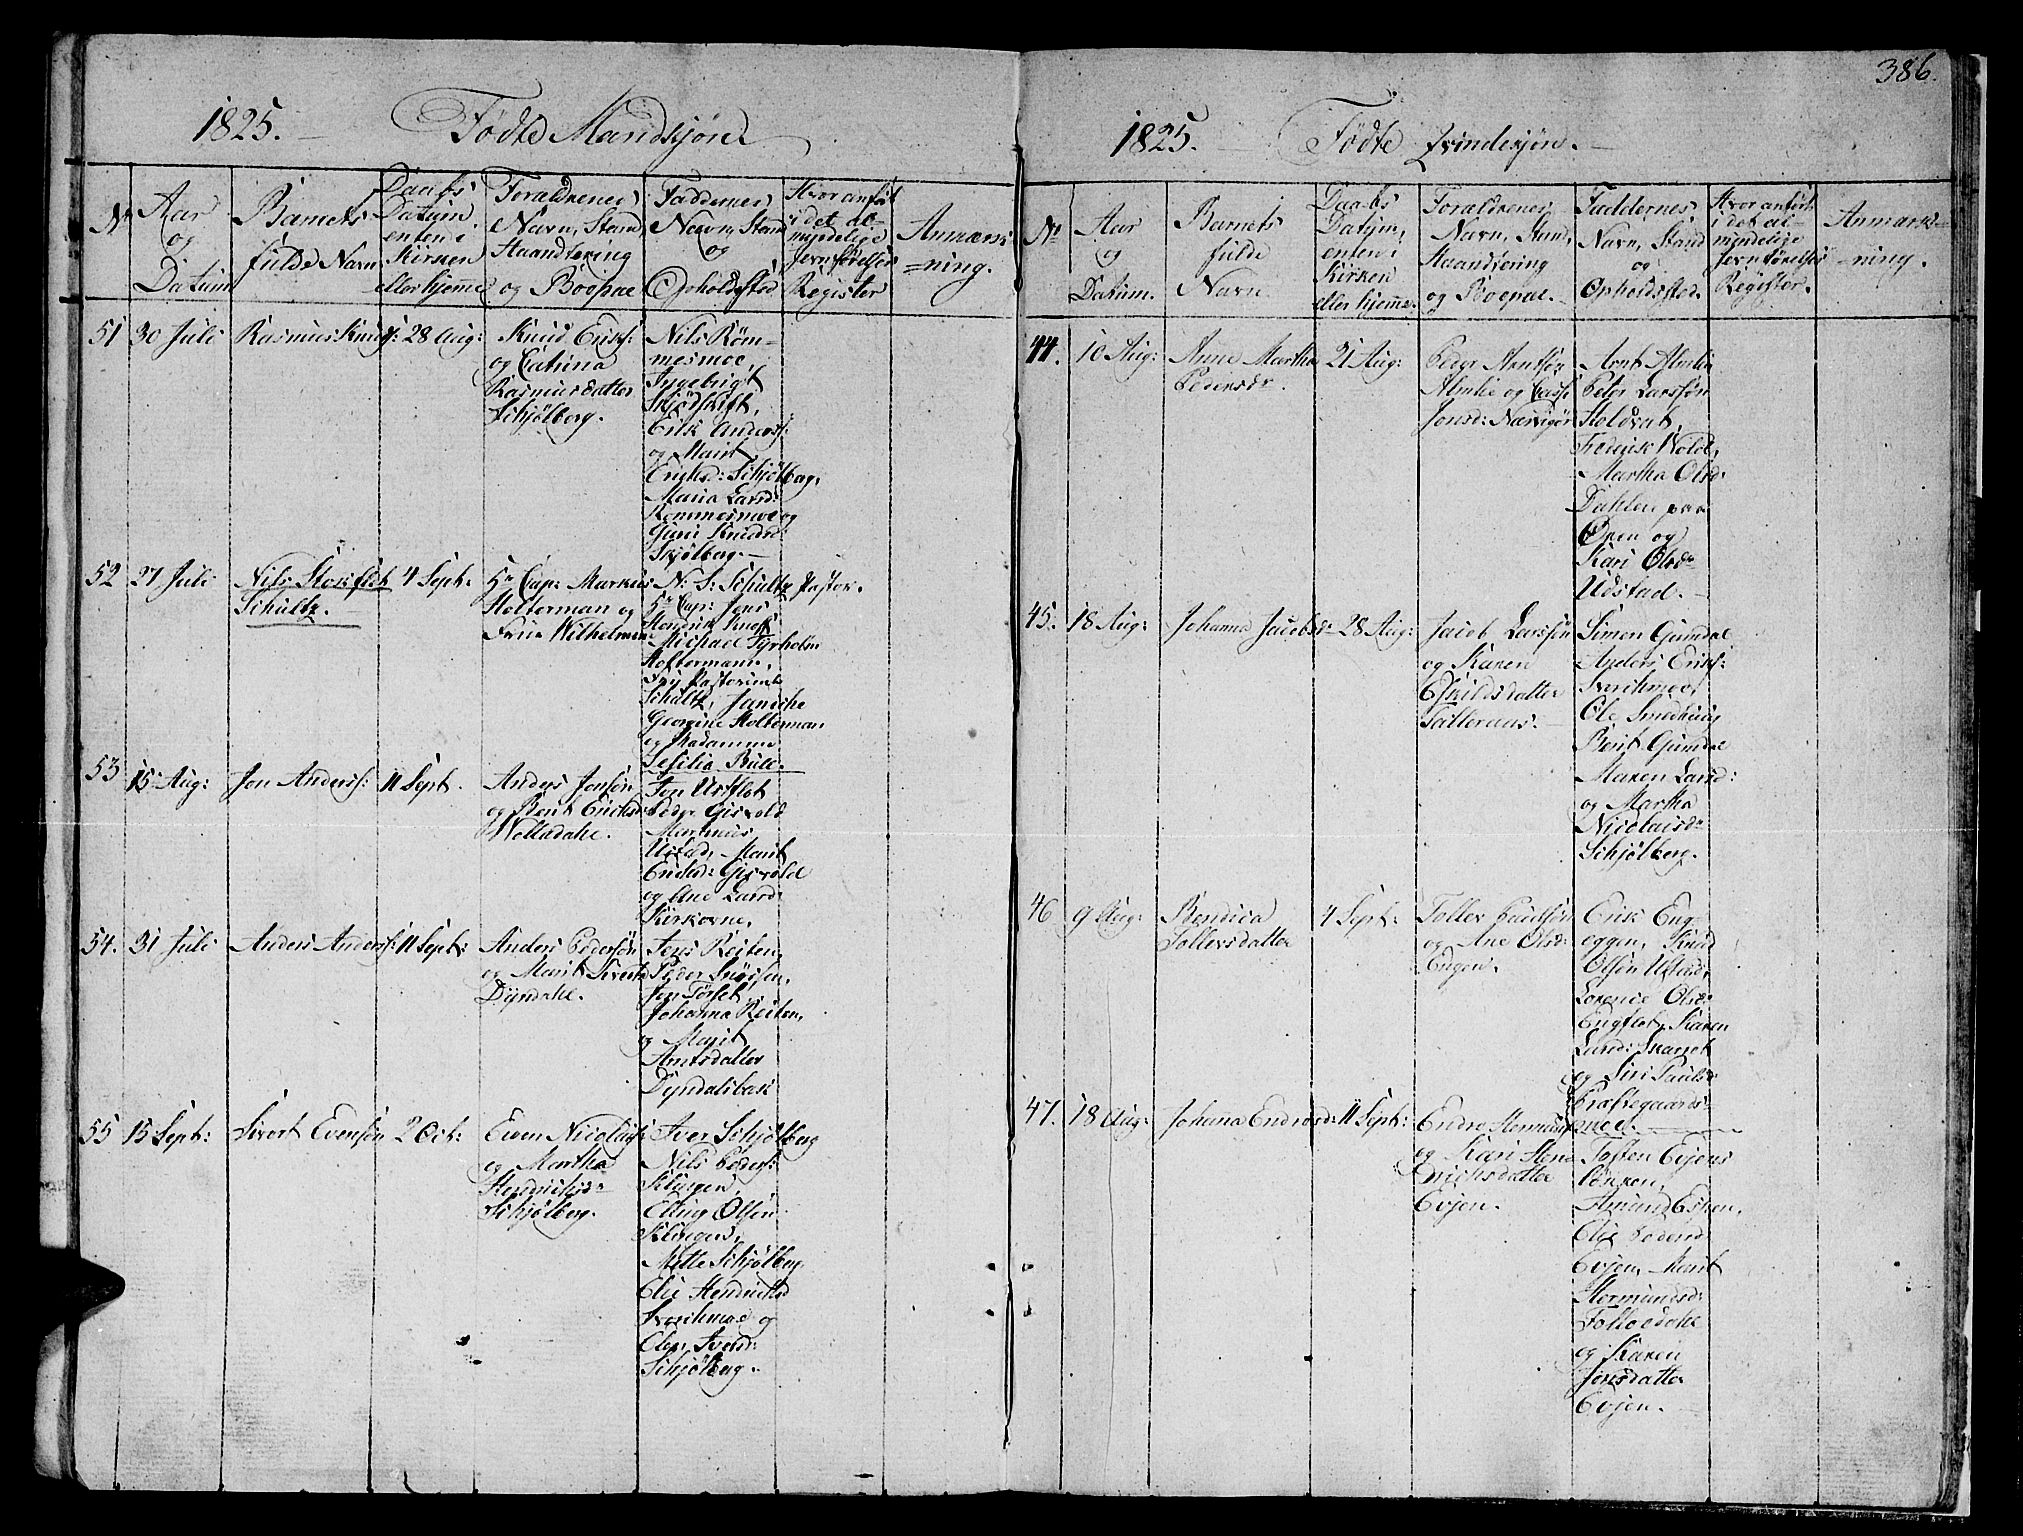 386.
1825. – Fødte Mandkjøn
No
Aar
og
Datum
Barnets
fulde Navn
Daabs
Datum
enten i
Kirken
eller hjemme
Forældrenes
Navn, Stand
Haandtering
og Boepæl
Faddernes
Navn, Stand
og
Opholdssted
Hvor anført
i det al-
myndelige
Jevnførelses
Register
Anmærk
=ning.
51 30 Juli Rasmus Knuds: 28 Aug:
Knud Eriks:
og Catrina
Rasmusdatter
Schjølberg.
Nils Röm-
mesmoe,
Ingebrigt
Skjødskift,
Erik Anders:
og Marit
Ericksd: Schjølberg,
Maria Larsd:
Rommesmoe og
Guri Knudsd:
Skjølberg.
52 27 Juli Nils Stokflet
Schultz.
4 Sept:
Sr Cap: Markus
Holterman og
Frue Wilhelmine
N: S: Schultz Pastor.
Sr Cap: Jens
Hendrik Knoff
Michael Tyrholm
Holtermann,
Schultz, Janiche
Georgine Holterman
og Madamme
Sesilia Bull.
53 15 Aug: Jon Anders: 11 Sept.
Anders Jonsøn
og Berit Ericksd:
Wolladale.
Jon Ustflot
Peder Gisvold
Marhnus
Ustad, Marit
Ericksd: Gisvold
og Ane Larsd:
Kirkovne.
54. 31 Juli Anders Anders: 11 Sept:
Anders Pedersøn
og Marit
Dyndahl.
Jens Reiten,
Peder
Jon Torset,
Johanna Reiten,
og Marit
Arntsdatter
Dyndalsbak
55 15 Sept: Sivort Evensøn 2 Oct:
Even Nicolays:
og Martha
Hendrichsdr
Schjølberg.
Iver Schjølberg
Nils Peders:
Klingen,
Elling Olsen
Klingen,
Mette Schjølberg
Elie Hendrichsd
Svorkmoe og
Elen Iversd:
Schjølberg.
1825. – Fødte Qvindekjøn. –
No
Aar
og
Datum.
Barnets
fulde
Navn
Daabs
Datum,
enten i
Kirken
eller hjemme.
Forældrenes
Navn, Stand,
Haandtering
og Boepæl.
Faddernes
Navn, Stand
og
Opholdssted.
Hvor anført
i det al-
mindelige
Jevnførelses
Register.
Anmærk=
=ning.
44. 10 Aug: Anne Martha
Pedersdr.
21 Aug:
Peder Arntsøn
Almlie og
Jonsd: Narvigør
Arnt Almlie
Peter Larssøn
Holdvat,
Fredrick Wold,
Martha Olsd:
Dahlen paa
Øren og
Kari Olsdr
Udstad.
45. 18 Aug: Johanna Jacobsdr 28 Aug:
Jacob Larssøn
og Karen
Eskildsdatter
Tatteraas.
Simon Gumdal
Anders Eriks:
Svorkmoe,
Ole Smedhaug
Berit Gumdal
Maren Larsd:
og Martha
Nicolaisdr
Schjølberg.
46 9 Aug: Bendica
Tollersdatter
4 Sept:
Toller Paulsøn
og Ane Olsd:
Engen.
Erik Eng-
eggen, Knud
Olsøn Ustad,
Lorence Olsdr
Engflot, Karen
Larsd: Skarset
og Siri Paulsdr
Præstegaards-
moe.
47. 18 Aug: Johana Endresd: 11 Sept:
Endre
og Kari
Erichsdatter
Evjen.
Tosten Evjens
Lökken,
Amund Evjen,
Elie Pedersd
Evjen, Marit
Hermundsd:
og Karen
Jonsdatter
Evjen.